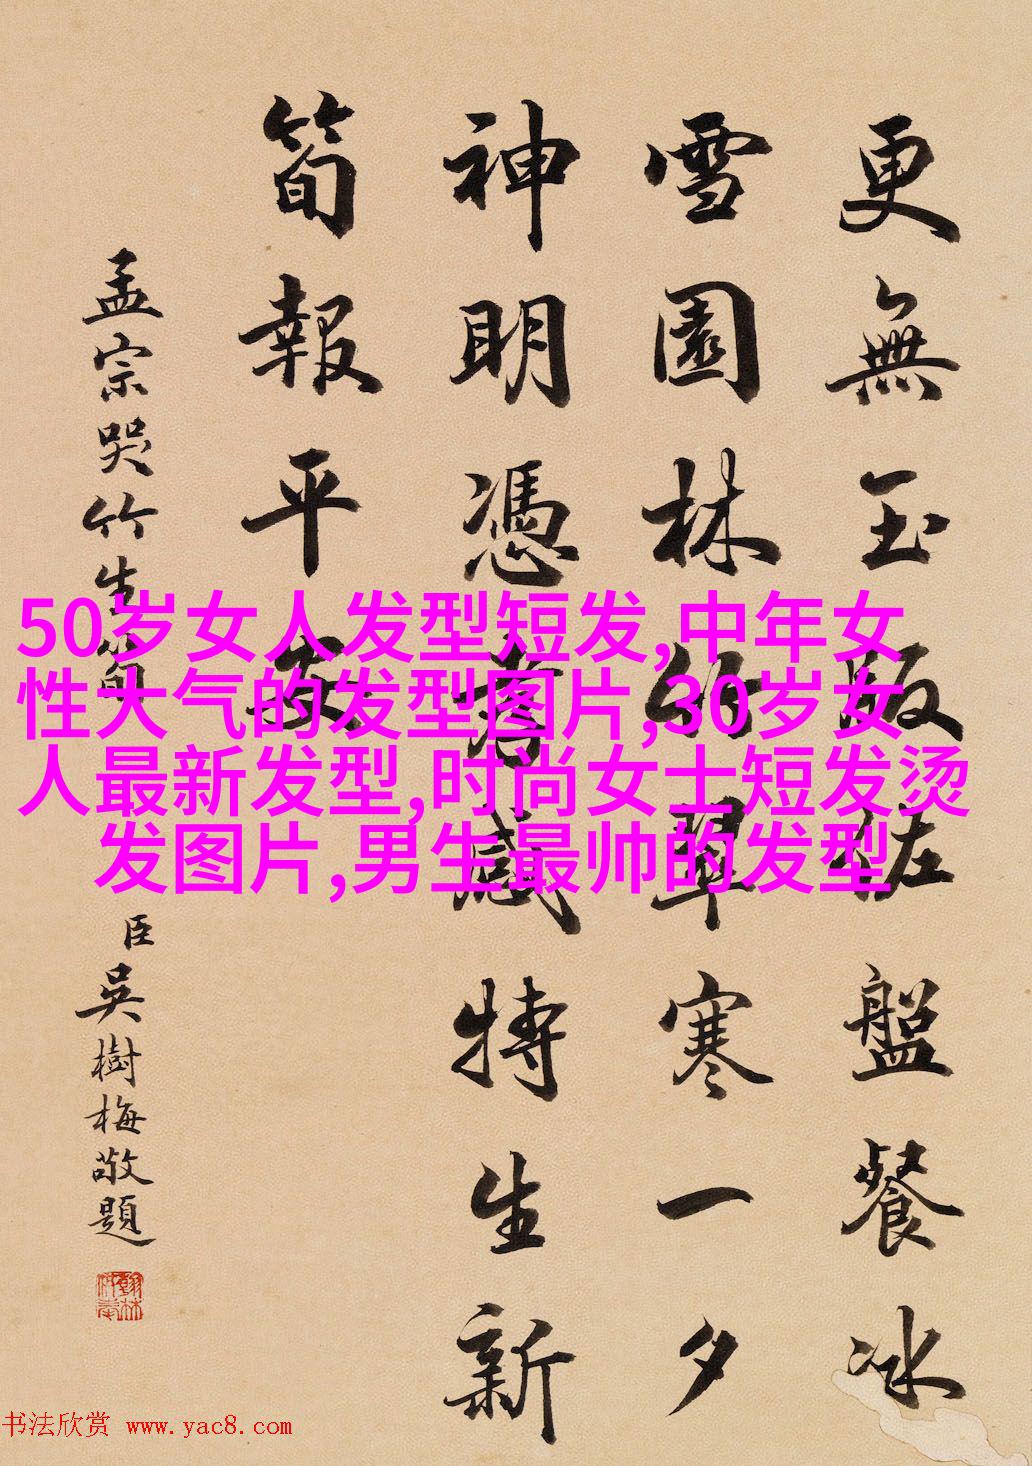 更無玉版佐盤餐冰
雪園林竹翠寒一夕
神明憑孝感特生新
筍報平安
孟宗哭竹生筍
臣吳樹梅敬題
翰林供奉
50岁女人发型短发,中年女
性大气的发型图片,30岁女
人最新发型,时尚女士短发烫
发图片,男生最帅的发型
书法欣赏 www.yac8.com